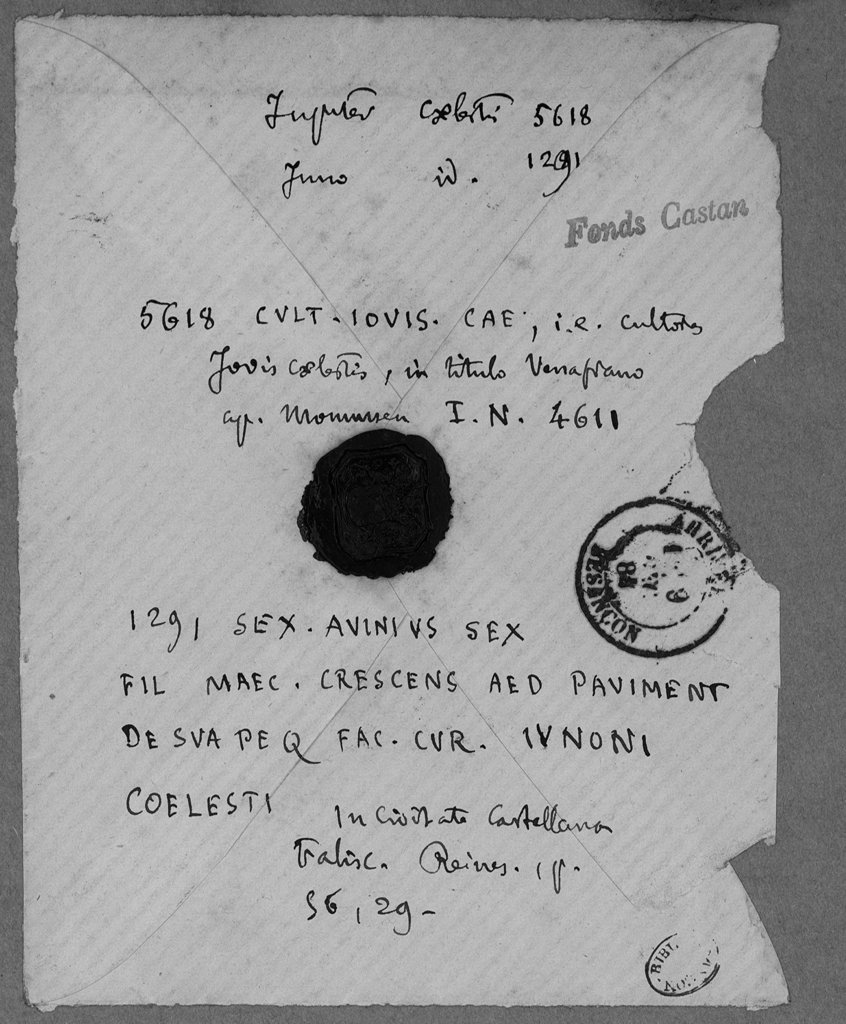 Jupiter cœlestis 5618
Juno id. 1291
Fonds Castan
5618 CVLT. IOVIS. CAE, i.e. cultores
Jovis cœlestis, in titulo Venafrano
ap. Mommsen I.N. 4611
ARRIVÉE
BESANÇON
84
1291 SEX. AVINIVS SEX
FIL MAEC. CRESCENS AED PAVIMENT
DE SVA PEQ FAC. CVR. IVNONI
COELESTI In Civitate Castellana
Falisc. Reines. 1 p.
56, 29-
BIBL.